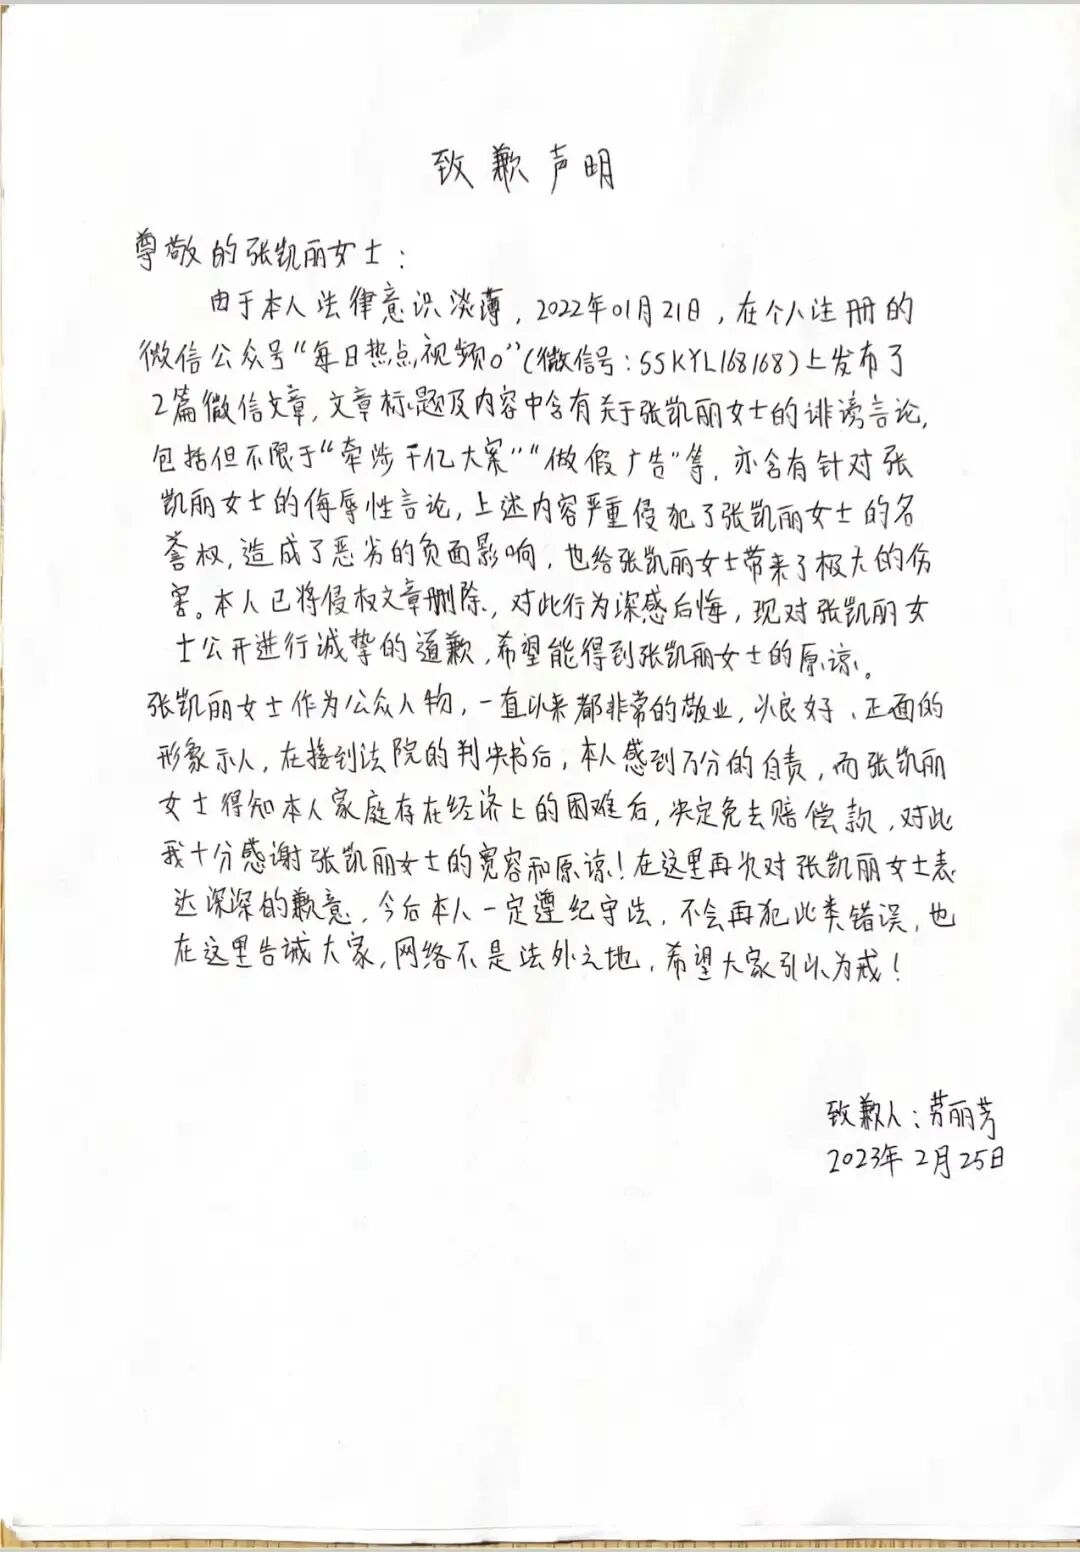 致歉声明
尊敬的张凯丽女士：
由于本人法律意识淡薄，2022年01月21日，在个人注册的
微信公众号“每日热点视频o”(微信号：SSKYL168168)上发布了
2篇微信文章，文章标题及内容中含有关于张凯丽女士的诽谤言论，
包括但不限于“牵涉千亿大案”“做假广告”等，亦含有针对张
凯丽女士的侮辱性言论，上述内容严重侵犯了张凯丽女士的名
誉权，造成了恶劣的负面影响，也给张凯丽女士带来了极大的伤
害。本人已将侵权文章删除，对此行为深感后悔，现对张凯丽女
士公开进行诚挚的道歉，希望能得到张凯丽女士的原谅。
张凯丽女士作为公众人物，一直以来都非常的敬业，以良好、正面的
形象示人，在接到法院的判决书后，本人感到万分的自责，而张凯丽
女士得知本人家庭存在经济上的困难后，决定免去赔偿款，对此
我十分感谢张凯丽女士的宽容和原谅！在这里再次对张凯丽女士表
达深深的歉意，今后本人一定遵纪守法，不会再犯此类错误，也
在这里告诫大家，网络不是法外之地，希望大家引以为戒！
致歉人：劳丽芳
2023年2月25日